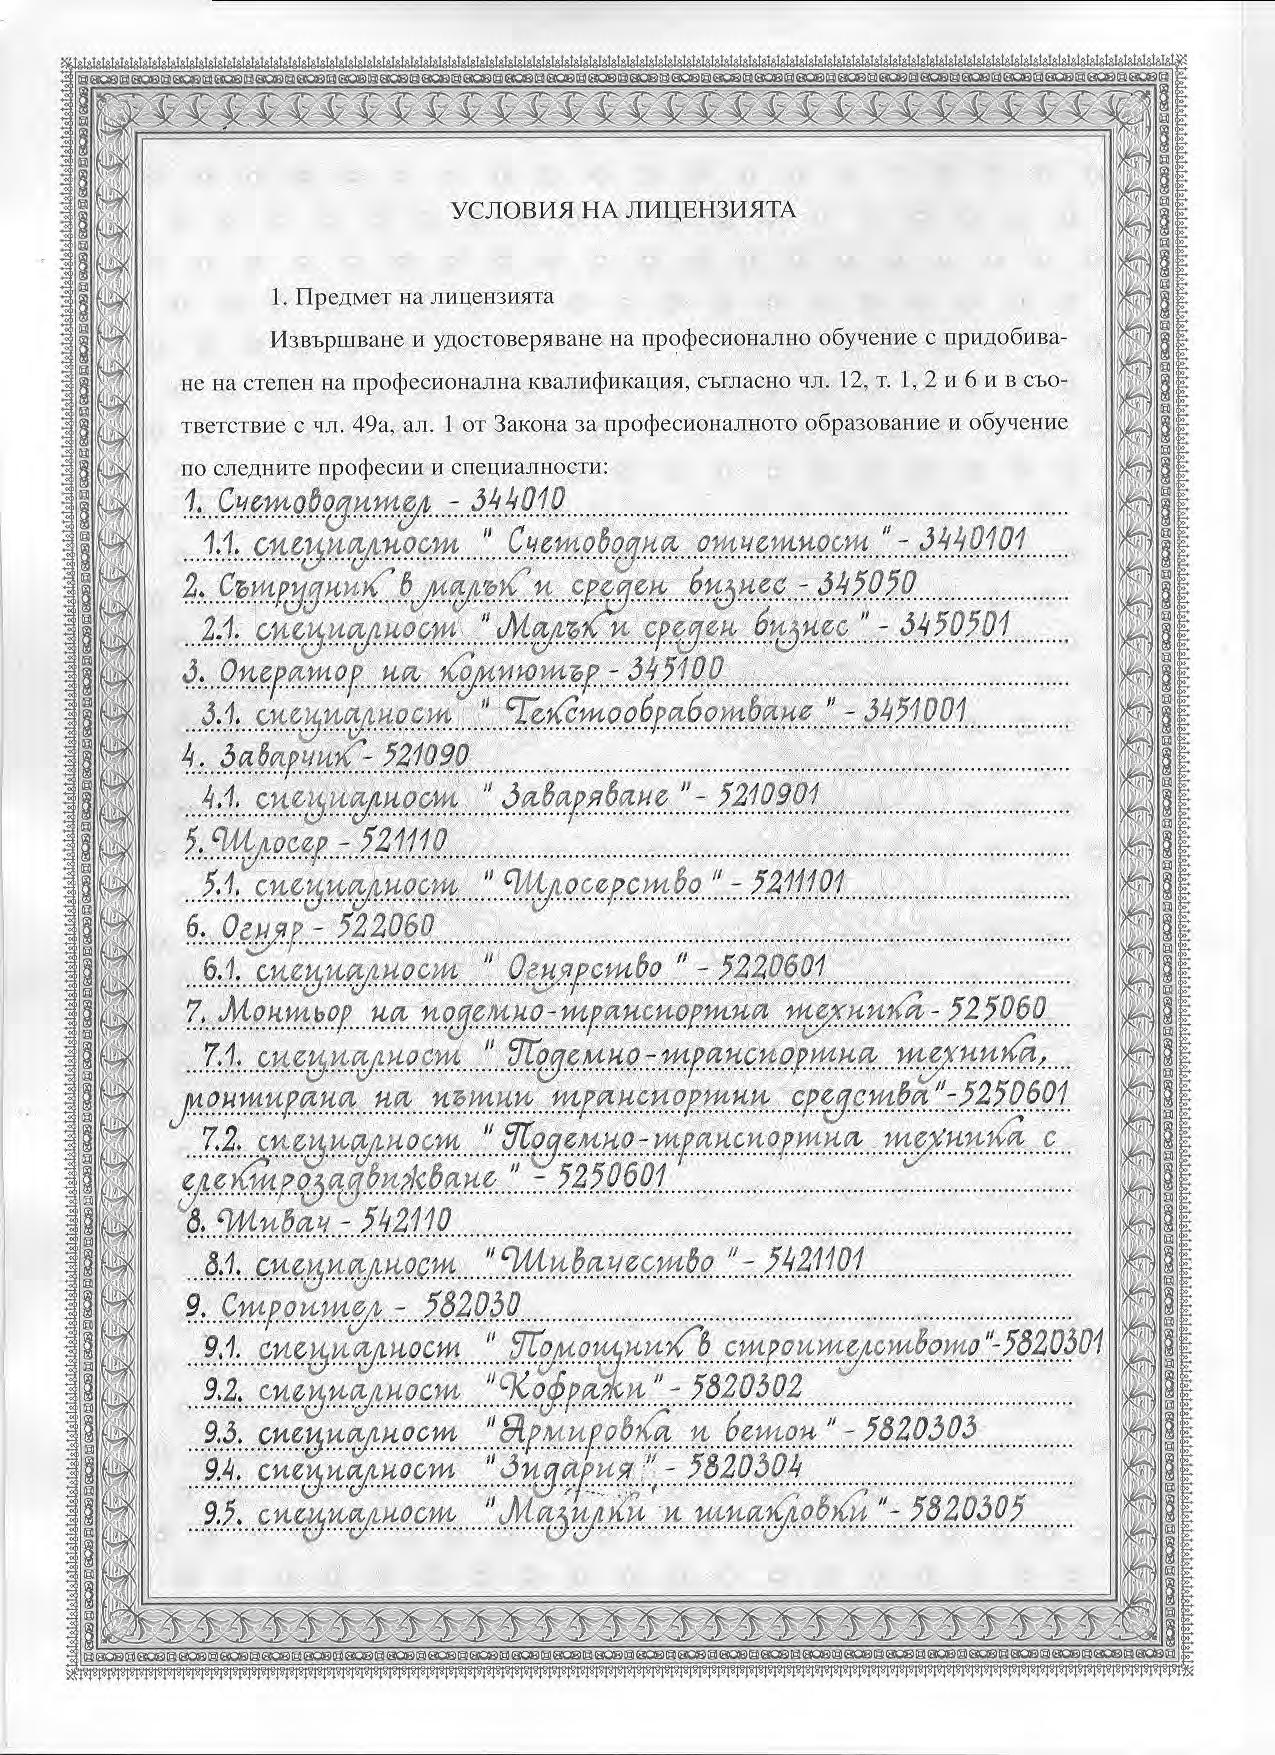 УСЛОВИЯ НА ЛИЦЕНЗИЯТА
1. Предмет на лицензията
Извършване и удостоверяване на професионално обучение с придобива-
не на степен на професионална квалификация, съгласно чл. 12, т. 1, 2 и 6 и в съо-
тветствие с чл. 49а, ал. 1 от Закона за професионалното образование и обучение
по следните професии и специалности:
1. Счетоводител - 344010
1.1. специалност " Счетоводна отчетност " - 3440101
2. Сътрудник в малък и среден бизнес - 345050
2.1. специалност "Малък и среден бизнес " - 3450501
3. Оператор на компютър - 345100
3.1. специалност " Текстообработване " - 3451001
4. Заварчик - 521090
4.1. специалност " Заваряване " - 5210901
5. Шлосер - 521110
5.1. специалност " Шлосерство " - 5211101
6. Огняр - 522060
6.1. специалност " Огнярство " - 5220601
7. Монтьор на подемно-транспортна техника - 525060
7.1. специалност " Подемно-транспортна техника,
монтирана на пътни транспортни средства"-5250601
7.2. специалност " Подемно-транспортна техника с
електрозадвижване " - 5250601
8. Шивач - 542110
8.1. специалност "Шивачество " - 5421101
9. Строител - 582030
9.1. специалност " Помощник в строителството"-5820301
9.2. специалност "Кофражи" - 5820302
9.3. специалност "Армировка и бетон " - 5820303
9.4. специалност "Зидария " - 5820304
9.5. специалност "Мазилки и шпакловки " - 5820305